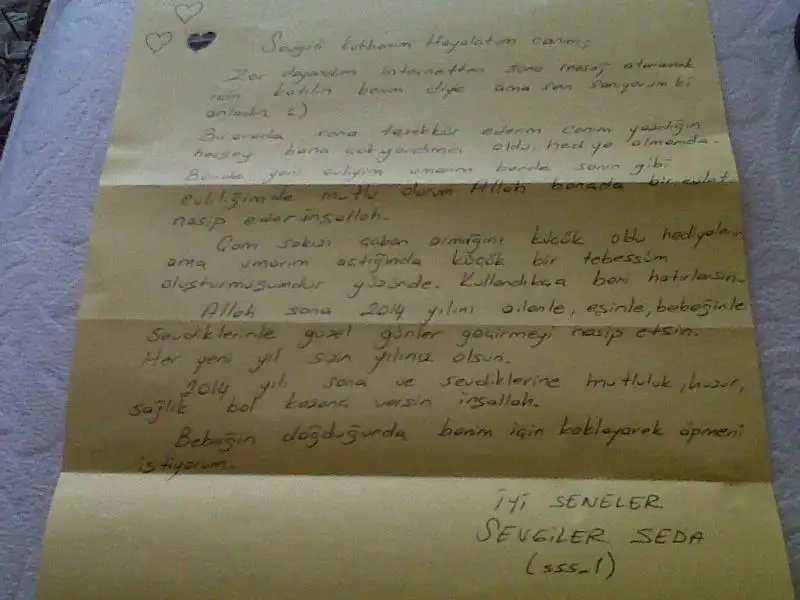 Sevgili kullanım Hayalatım canım;
Zor dayandım internetten sana mesaj atmamak
için katılın benim diye ama sen sanıyorum ki
anladın :)
Bu arada sana teşekkür ederim canım yazdığın
herşey bana çok yardımcı oldu, hediye almamda.
Bende yeni evliyim umarım bende senin gibi
evliliğimde mutlu olurum Allah banada bir evlat
nasip eder inşallah.
Çam sakızı çoban armağanı küçük oldu hediyelerim
ama umarım açtığında küçük bir tebessüm
oluşturmuşumdur yüzünde. Kullandıkça beni hatırlarsın.
Allah sana 2014 yılını ailenle, eşinle, bebeğinle
sevdiklerinle güzel günler geçirmeyi nasip etsin.
Her yeni yıl sizin yılınız olsun.
2014 yılı sana ve sevdiklerine mutluluk, huzur,
sağlık bol kazanç versin inşallah.
Bebeğin doğduğunda benim için koklayarak öpmeni
istiyorum.
İYİ SENELER
SEVGİLER SEDA
(sss_1)